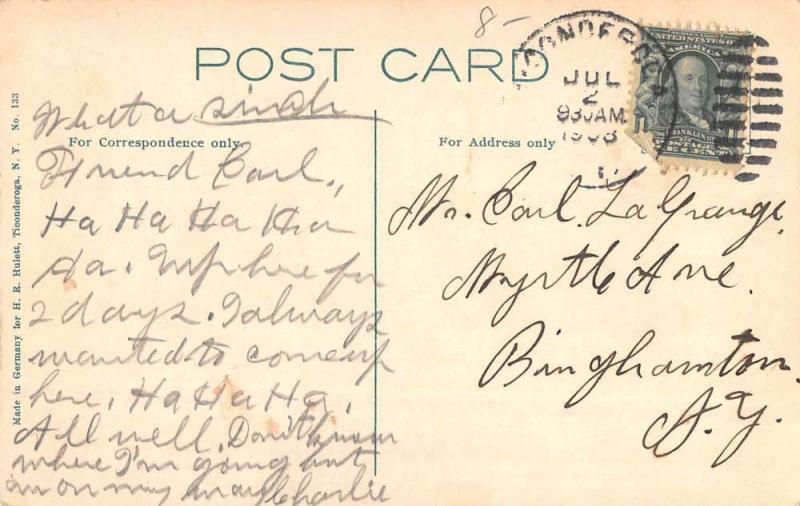 8-
POST CARD
TICONDEROGA
JUL
2
930AM
1908
SERIES 1902
UNITED STATES OF
AMERICA
FRANKLIN
POSTAGE
ONE CENT
Made in Germany for H. R. Hulett, Ticonderoga, N. Y. No. 133
What a sinch
For Correspondence only
Friend Carl.,
Ha Ha Ha Ha
Ha. Im up here for
2 days. I always
wanted to come up
here, Ha Ha Ha,
All well. Don't know
where I'm going but
am on my way Charlie
For Address only
Mr. Carl. La Grange,
Myrtle Ave.
Binghamton.
N.Y.